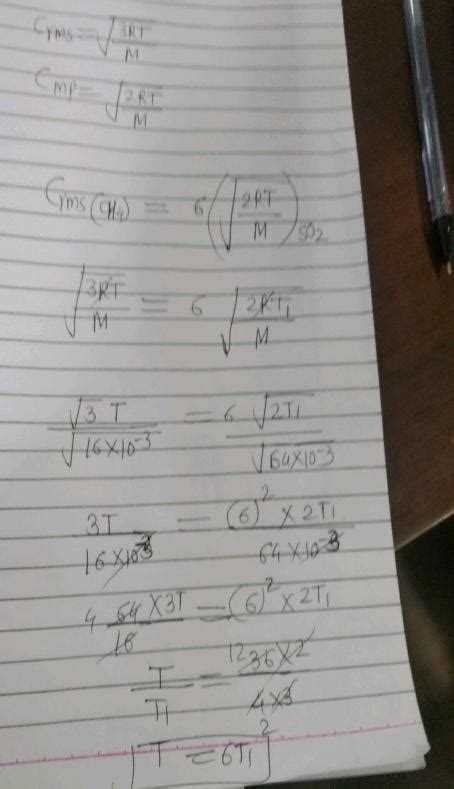 Crms = √3RT/M
Cmp = √2RT/M
Crms(CH4) = 6 (√2RT/M)SO2
√3RT/M = 6 √2RT1/M
√3 T/√16×10⁻³ = 6 √2T1/√64×10⁻³
3T/16×10⁻³ = (6)² × 2T1/64×10⁻³
4 64×3T/16 = (6)² × 2T1
T/T1 = 12 36×2/4×3 2
T = 6T1